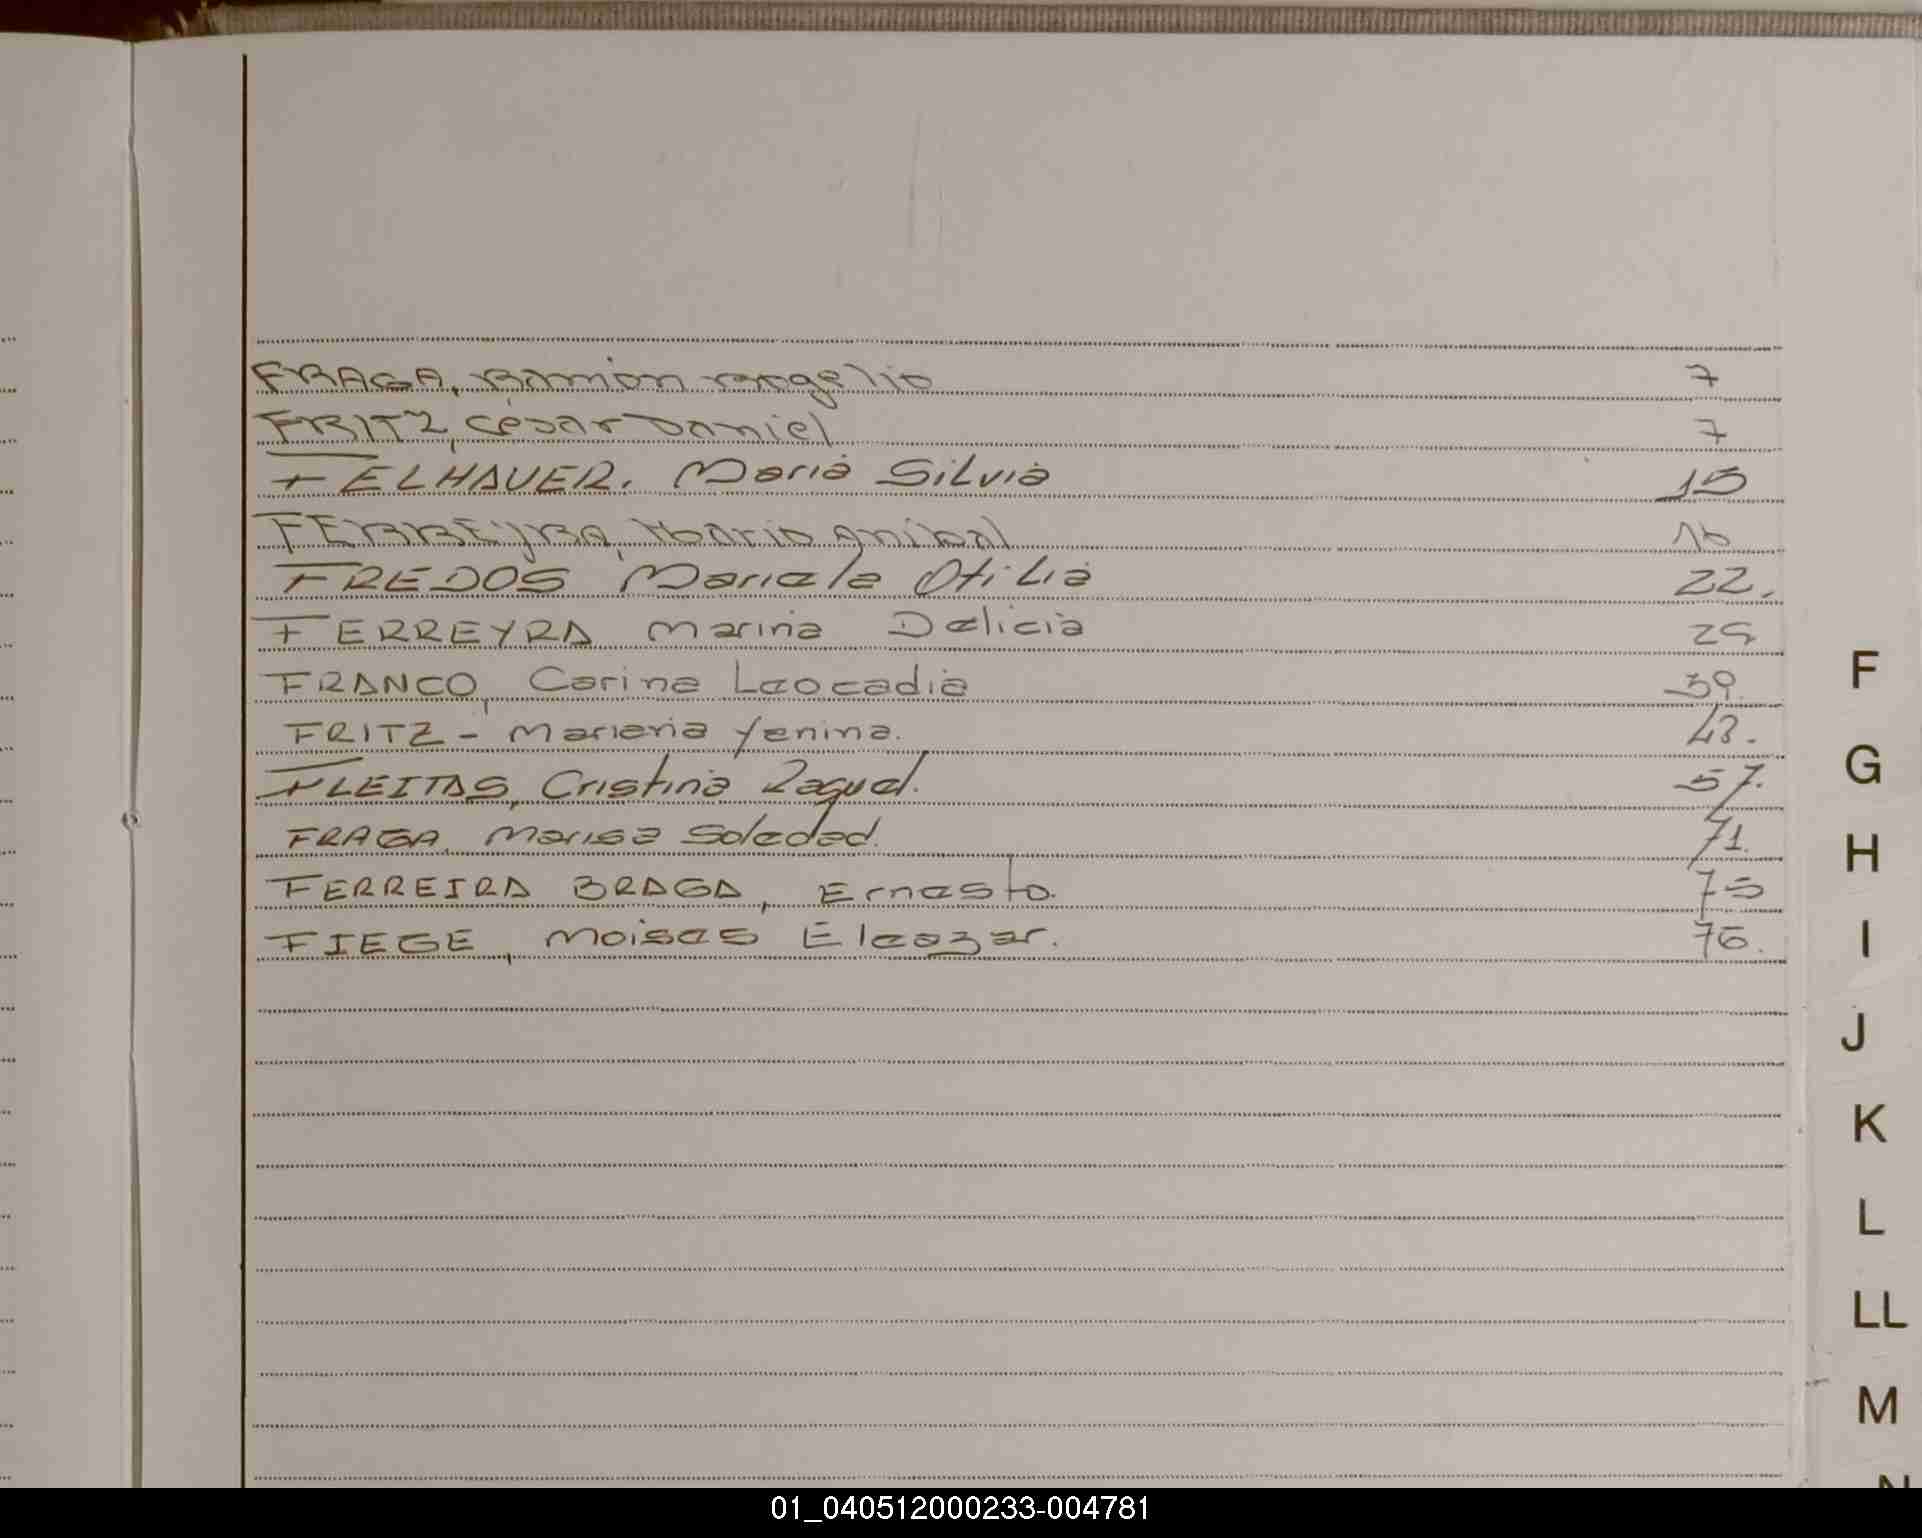 FRAGA, Ramón Rogelio 7
FRITZ, César Daniel 7
FELHAUER. Maria Silvia 15
FERREYRA, Mario Anibal 16
FREDOS Mariela Otilia 22.
FERREYRA Marina Delicia 29
FRANCO, Carina Leocadia 39.
FRITZ - Mariana Yenina. 43.
FLEITAS, Cristina Raquel. 57.
FRAGA, Marisa Soledad. 71.
FERREIRA BRAGA, Ernesto. 75
FIEGE, Moises Eleazar. 76.
F
G
H
I
J
K
L
LL
M
N
01_040512000233-004781